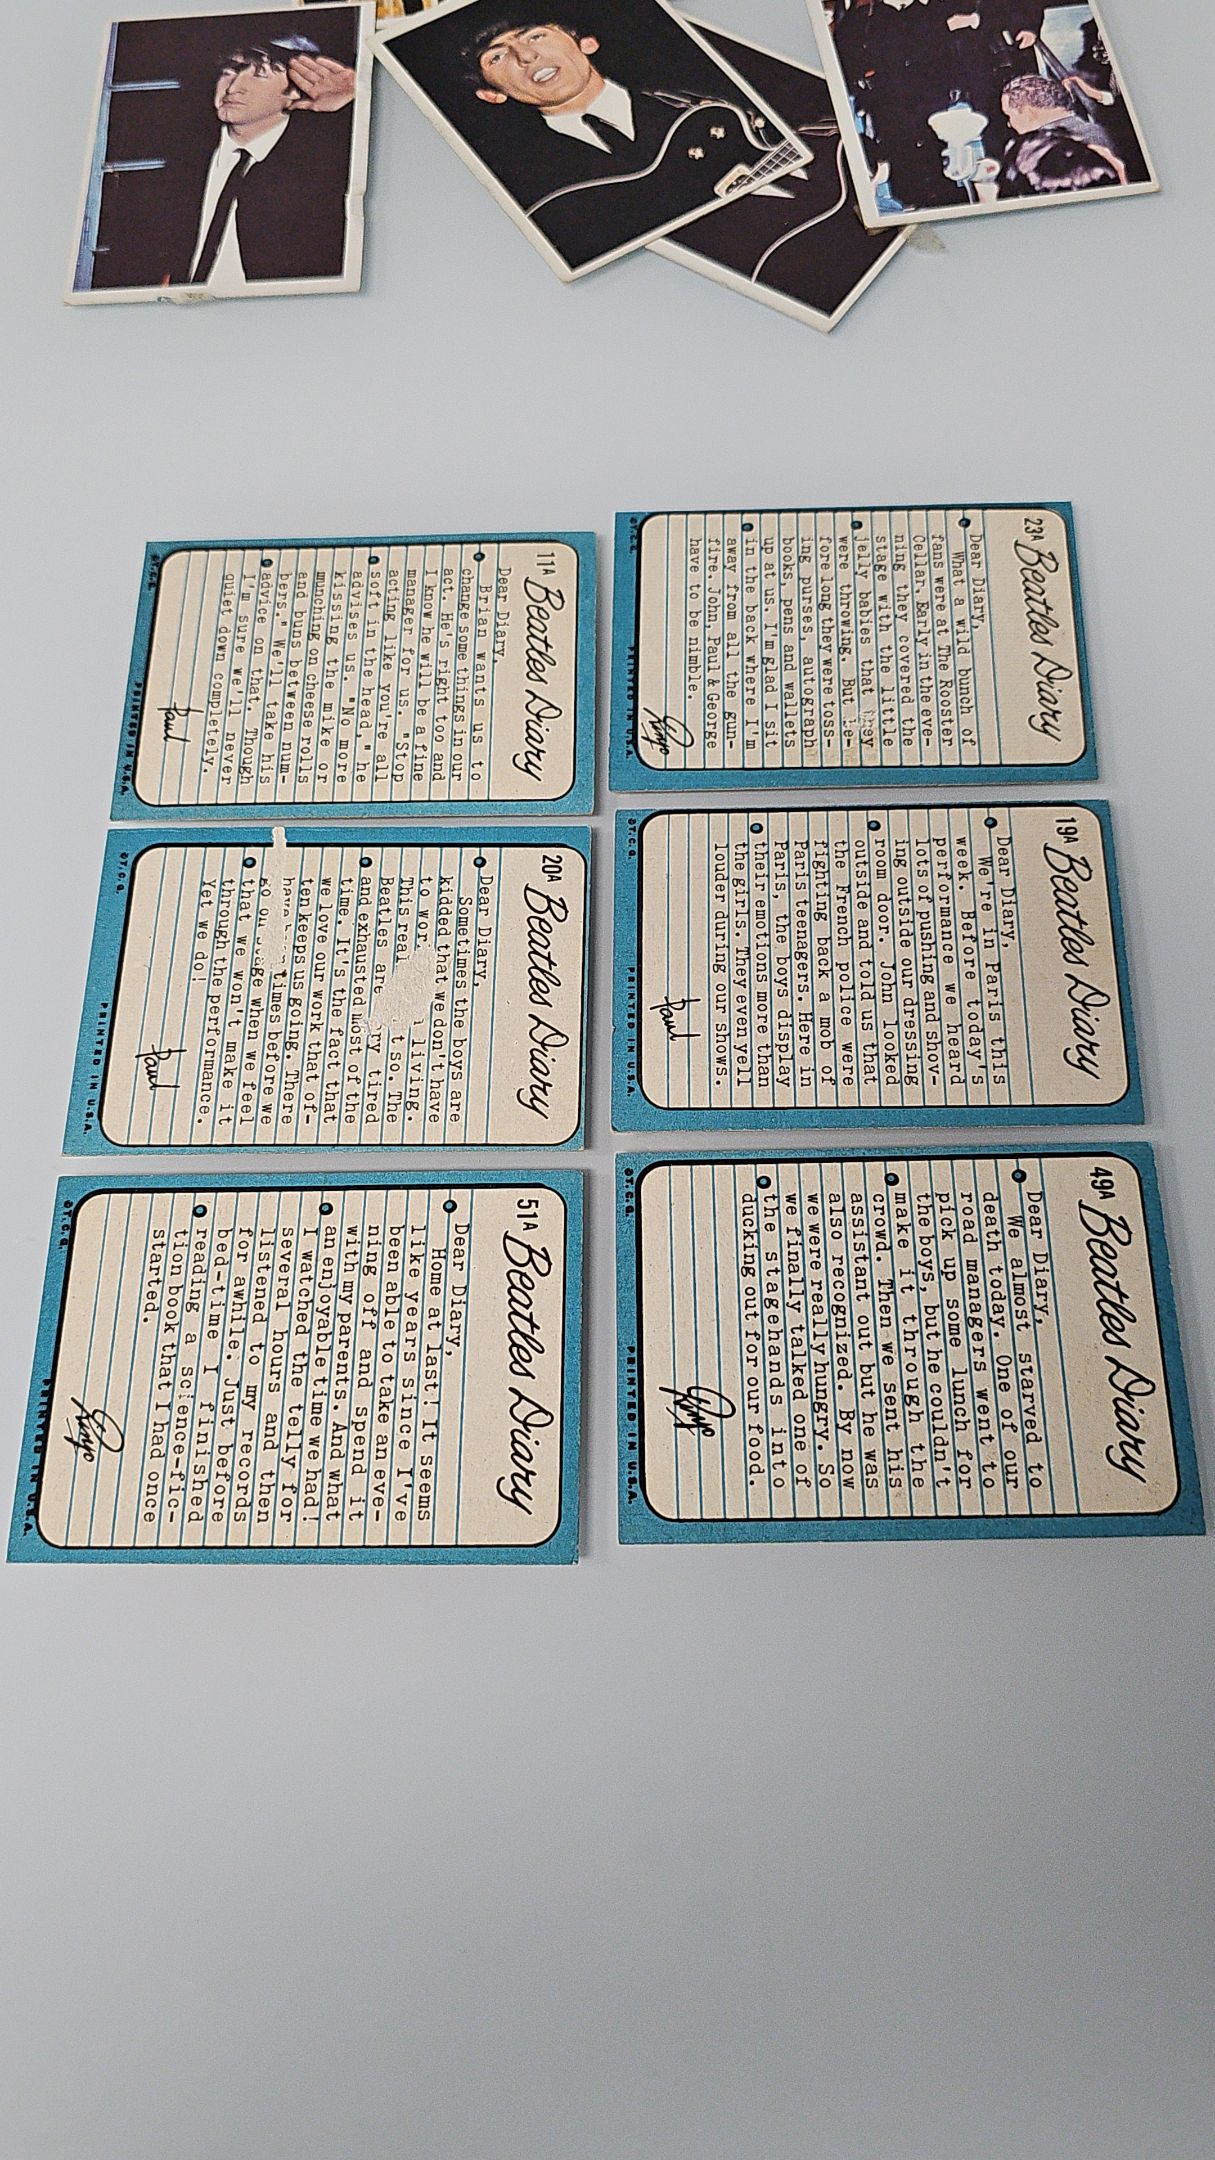 23A Beatles Diary
Dear Diary,
What a wild bunch of
fans were at The Rooster
Cellar. Early in the eve-
ning they covered the
stage with the little
jelly babies that they
were throwing. But be-
fore long they were toss-
ing purses, autograph
books, pens and wallets
up at us. I'm glad I sit
in the back where I'm
away from all the gun-
fire. John, Paul & George
have to be nimble.
Ringo
©T.C.G.
PRINTED IN U.S.A.
19A Beatles Diary
Dear Diary,
We're in Paris this
week. Before today's
performance we heard
lots of pushing and shov-
ing outside our dressing
room door. John looked
outside and told us that
the French police were
fighting back a mob of
Paris teenagers. Here in
Paris, the boys display
their emotions more than
the girls. They even yell
louder during our shows.
Paul
©T.C.G.
PRINTED IN U.S.A.
49A Beatles Diary
Dear Diary,
We almost starved to
death today. One of our
road managers went to
pick up some lunch for
the boys, but he couldn't
make it through the
crowd. Then we sent his
assistant out but he was
also recognized. By now
we were really hungry. So
we finally talked one of
the stagehands into
ducking out for our food.
Ringo
©T.C.G.
PRINTED IN U.S.A.
11A Beatles Diary
Dear Diary,
Brian wants us to
change some things in our
act. He's right too and
I know he will be a fine
manager for us. "Stop
acting like you're all
soft in the head," he
advises us. "No more
kissing the mike or
munching on cheese rolls
and buns between num-
bers." We'll take his
advice on that. Though
I'm sure we'll never
quiet down completely.
Paul
©T.C.G.
PRINTED IN U.S.A.
20A Beatles Diary
Dear Diary,
Sometimes the boys are
kidded that we don't have
to wor living.
This real t so. The
Beatles are ry tired
and exhausted most of the
time. It's the fact that
we love our work that of-
ten keeps us going. There
have times before we
go on stage when we feel
that we won't make it
through the performance.
Yet we do!
Paul
©T.C.G.
PRINTED IN U.S.A.
51A Beatles Diary
Dear Diary,
Home at last! It seems
like years since I've
been able to take an eve-
ning off and spend it
with my parents. And what
an enjoyable time we had!
I watched the telly for
several hours and then
listened to my records
for awhile. Just before
bed-time I finished
reading a science-fic-
tion book that I had once
started.
Ringo
©T.C.G.
PRINTED IN U.S.A.